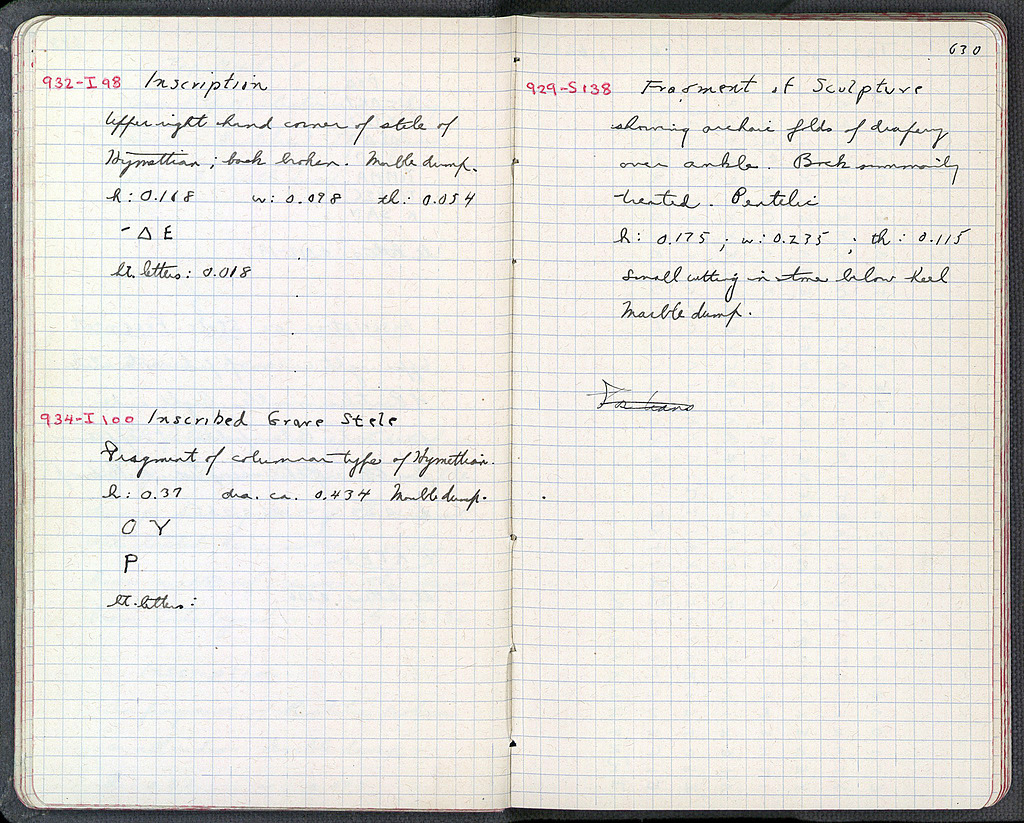 932-I 98 Inscription
Upper right hand corner of stele of
Hymettian; back broken. Marble dump.
h: 0.168 w: 0.098 th.: 0.054
-Δ E
ht. letters: 0.018
934-I 100 Inscribed Grave Stele
Fragment of columnar type of Hymettian.
h: 0.37 dia. ca. 0.434 Marble dump.
O Y
P
ht. letters:
630
929-S 138 Fragment of Sculpture
showing archaic folds of drapery
over ankle. Back summarily
treated. Pentelic
h: 0.175; w: 0.235; th: 0.115
Small cutting in stone below heel
Marble dump.